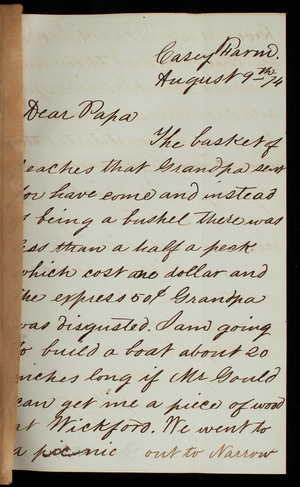 Casey Farm.
August 9th/74
Dear Papa
The basket of
eaches that Grandpa sent
for have come and instead
being a bushel there was
ess than a half a peck
which cost one dollar and
the express 50¢ Grandpa
was disgusted. I am going
to build a boat about 20
inches long if Mr Gould
can get me a piece of wood
at Wickford. We went to
a picnic out to Narrow